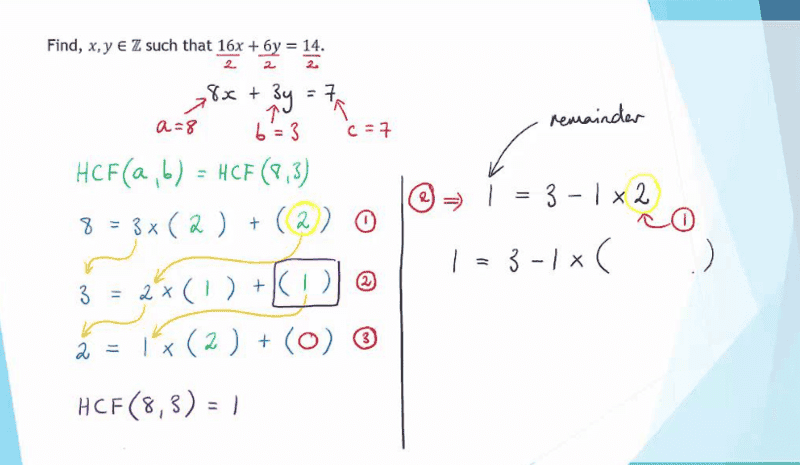 Find, x, y ∈ ℤ such that 16x + 6y = 14.
2 2 2
8x + 3y = 7
a=8 b=3 c=7
HCF(a,b) = HCF(8,3)
8 = 3×(2) + (2) ①
3 = 2×(1) + (1) ②
2 = 1×(2) + (0) ③
HCF(8,3) = 1
remainder
② ⇒ 1 = 3 − 1×2
①
1 = 3 − 1×( )